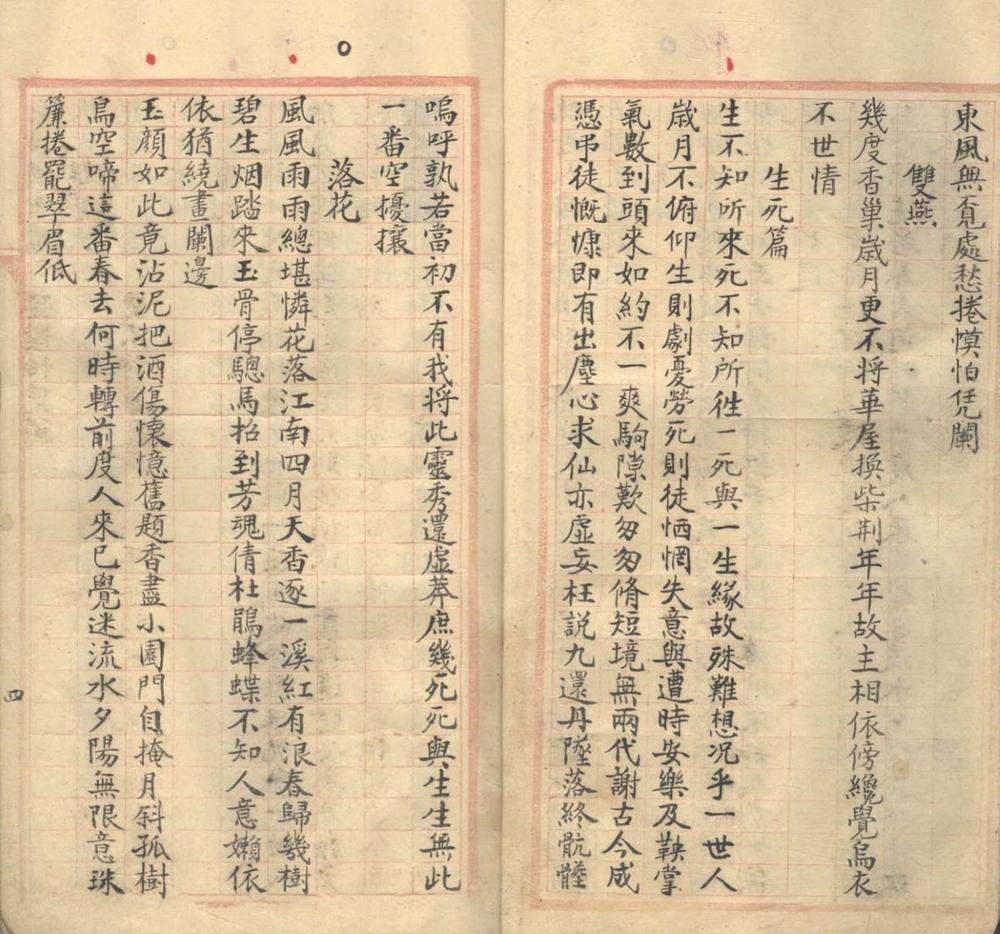 東風無覔處愁捲幙怕凭闌
雙燕
幾度香巢歲月更不將華屋換柴荆年年故主相依傍纔覺烏衣
不世情
生死篇
生不知所來死不知所徃一死與一生緣故殊難想况乎一世人
歲月不俯仰生則劇憂勞死則徒恓惘失意與遭時安樂及鞅掌
氣數到頭來如約不一爽駒隙歎匆匆脩短境無兩代謝古今咸
憑弔徒慨慷即有出塵心求仙亦虛妄枉説九還丹墜落終骯髒
嗚呼孰若當初不有我將此靈秀還虛莽庶幾死死與生生無此
一番空擾攘
落花
風風雨雨總堪憐花落江南四月天香逐一溪紅有浪春歸幾樹
碧生烟踏來玉骨停驄馬招到芳魂倩杜鵑蜂蝶不知人意嬾依
依猶繞畫闌邊
玉顔如此竟沾泥把酒傷懷憶舊題香盡小園門自掩月斜孤樹
鳥空啼這番春去何時轉前度人來已覺迷流水夕陽無限意珠
簾捲罷翠眉低
四